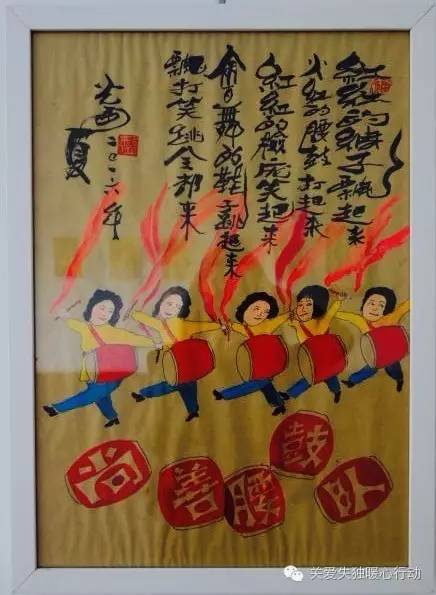 红红的绸子飘起来
火红的腰鼓打起来
红红的脸庞笑起来
會舞的鞋子跳起来
飘打笑跳全都来
二〇一六年
夏
尚善腰鼓队
关爱失独暖心行动